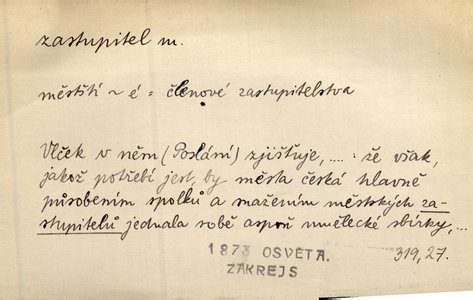 zastupitel m.
městští ~ é = členové zastupitelstva
Vlček v něm (Poslání) zjišťuje, .... : že však,
jakož potřebí jest, by města česká hlavně
působením spolků a snažením městských za-
stupitelů jednala sobě aspoň umělecké sbírky, ...
319,27.
1873 OSVĚTA.
ZÁKREJS